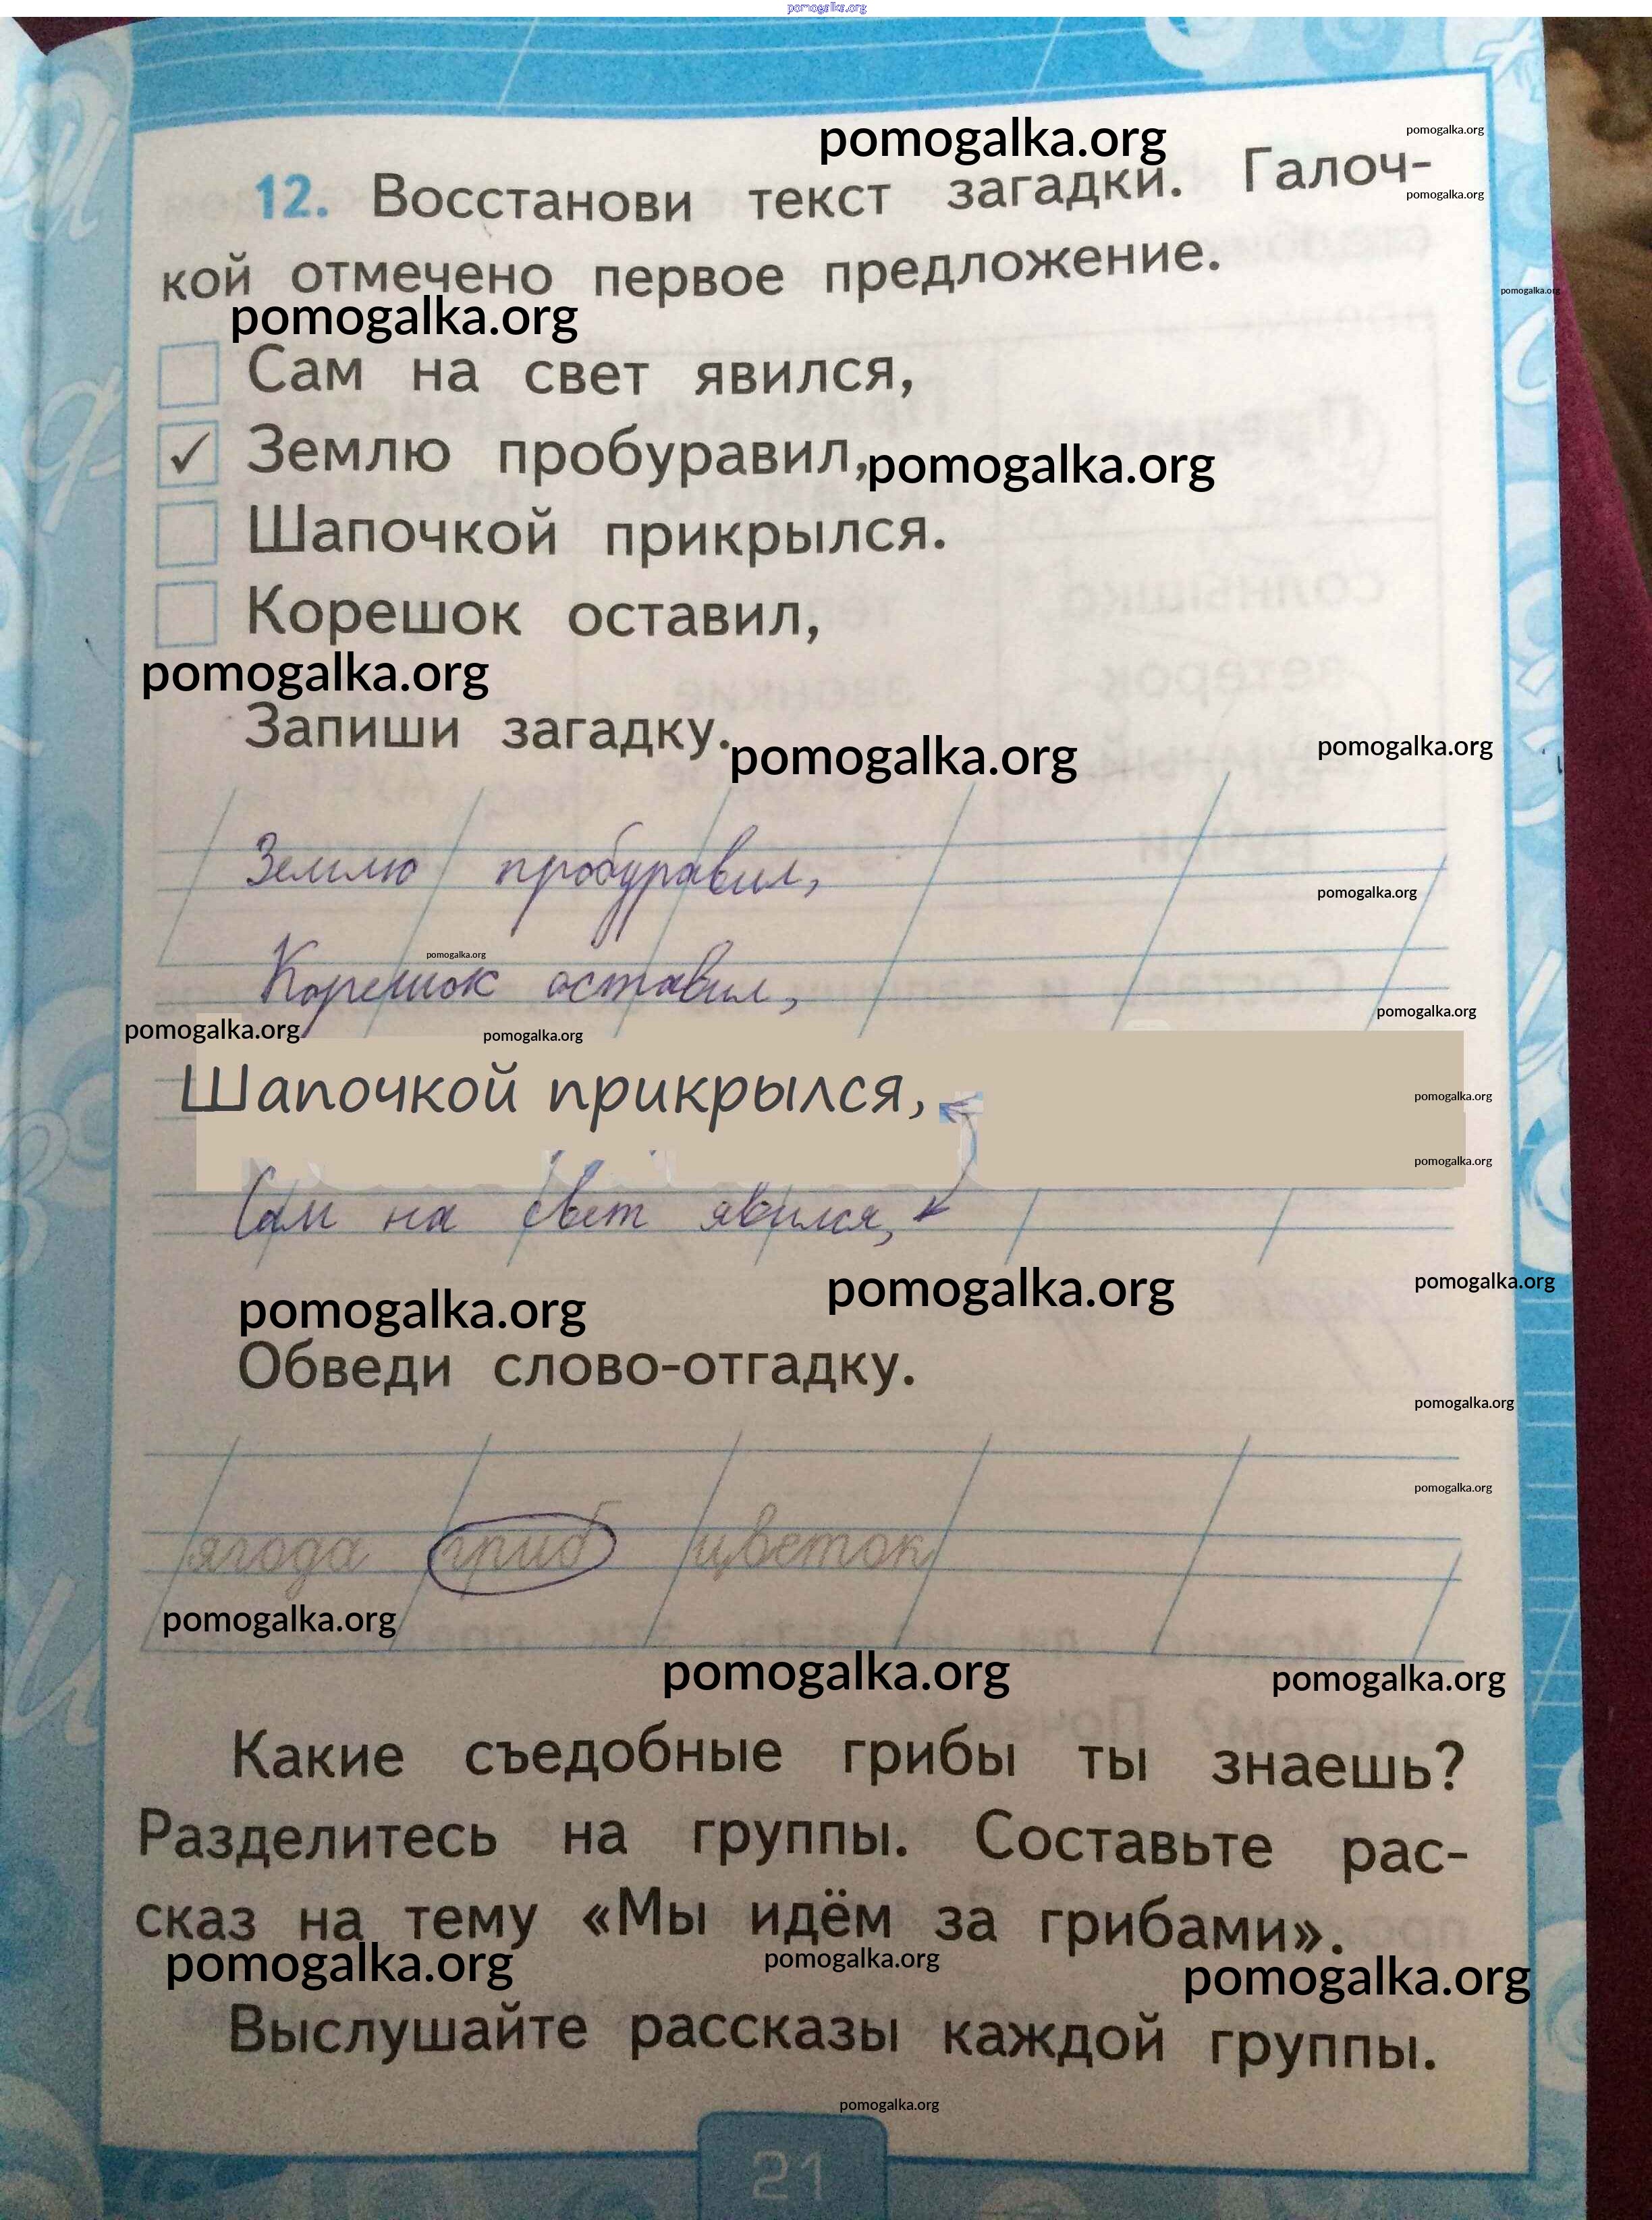 pomogalka.org
pomogalka.org
pomogalka.org
12. Восстанови текст загадки. Галоч-
pomogalka.org
кой отмечено первое предложение.
pomogalka.org
pomogalka.org
Сам на свет явился,
✓ Землю пробуравил,
pomogalka.org
Шапочкой прикрылся.
Корешок оставил,
pomogalka.org
Запиши загадку.
pomogalka.org
pomogalka.org
Землю пробуравил,
pomogalka.org
pomogalka.org
Корешок оставил,
pomogalka.org
pomogalka.org
pomogalka.org
Шапочкой прикрылся,
pomogalka.org
pomogalka.org
Сам на свет явился,
pomogalka.org
pomogalka.org
pomogalka.org
Обведи слово-отгадку.
pomogalka.org
pomogalka.org
ягода гриб цветок
pomogalka.org
pomogalka.org
pomogalka.org
Какие съедобные грибы ты знаешь?
Разделитесь на группы. Составьте рас-
сказ на тему «Мы идём за грибами».
pomogalka.org
pomogalka.org
pomogalka.org
Выслушайте рассказы каждой группы.
pomogalka.org
21